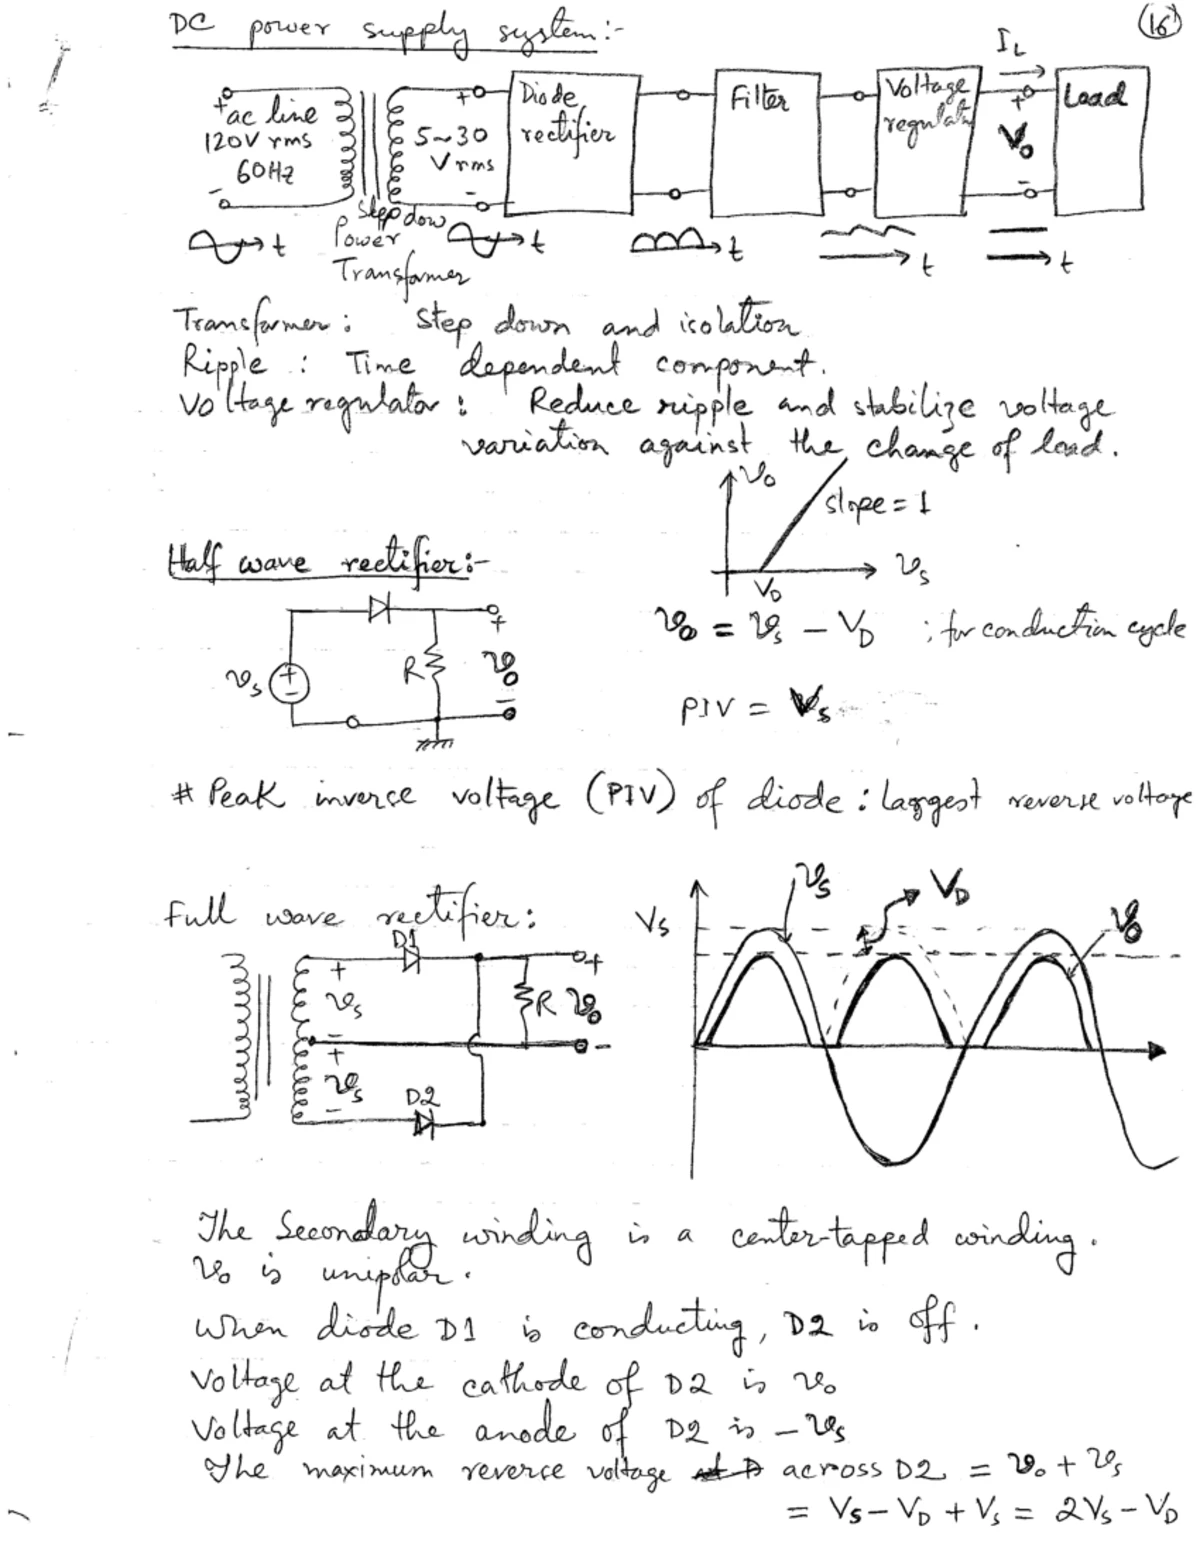 DC power supply system:-
(16)
+ ac line 120V rms 60Hz -
Step down Power Transformer
+ 5~30 V rms -
Diode rectifier
Filter
Voltage regulator
I_L
+ V_o -
Load
t t t t t
Transformer: Step down and isolation
Ripple : Time dependent component.
Voltage regulator : Reduce ripple and stabilize voltage
variation against the change of load.
v_o
slope = 1
V_D
v_s
Half wave rectifier:-
v_s + - R + v_o -
v_o = v_s - V_D ; for conduction cycle
PIV = V_s
# Peak inverse voltage (PIV) of diode : Largest reverse voltage
Full wave rectifier:
D1
+ v_s -
+ v_s -
D2
R + v_o -
V_s
v_s
V_D
v_o
The Secondary winding is a center-tapped winding.
v_o is unipolar.
When diode D1 is conducting, D2 is off.
Voltage at the cathode of D2 is v_o
Voltage at the anode of D2 is - v_s
The maximum reverse voltage across D2 = v_o + v_s
= V_s - V_D + V_s = 2V_s - V_D